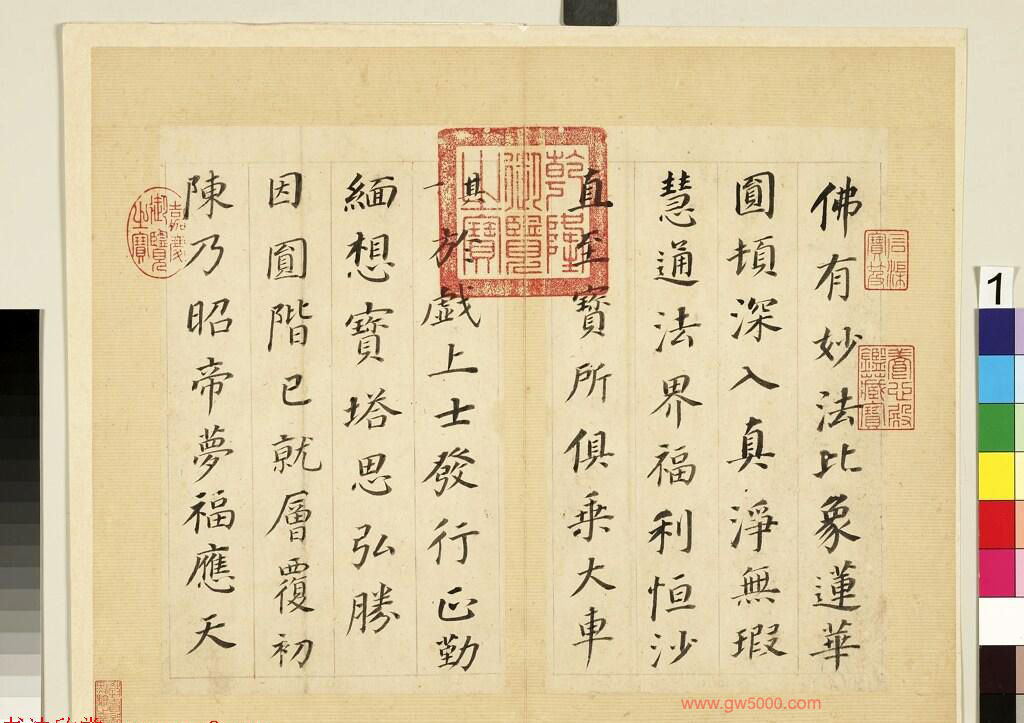 佛有妙法比象蓮華
圓頓深入真淨無瑕
慧通法界福利恒沙
直至寶所俱乘大車
其一
於戲上士發行正勤
緬想寶塔思弘勝
因圓階已就層覆初
陳乃昭帝夢福應天
乾隆御覽之寶
嘉慶御覽之寶
石渠寶笈
養心殿鑑藏寶
1
www.gw5000.com